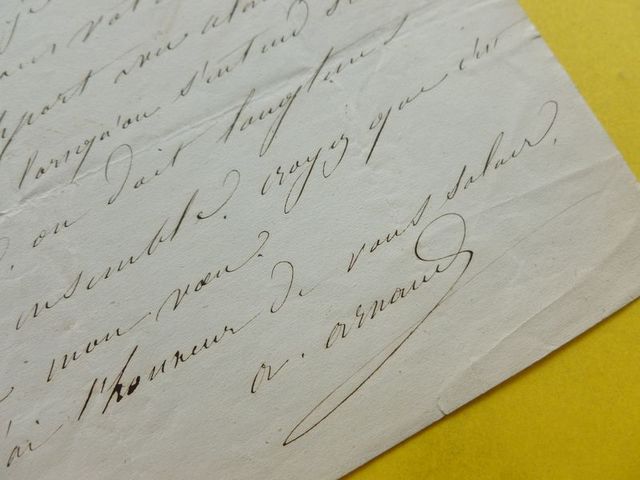 vous
part
lorsqu'on s'entend
on doit longtems
ensemble. croyez que c'est
mon vœu.
j'ai l'honneur de vous saluer,
a. arnaud